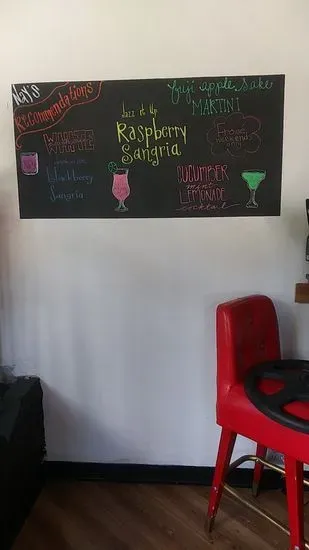 Nay's
Recommendations
WHITE
blackberry
Sangria
Jazz it Up
Raspberry
Sangria
fuji apple Sake
MARTINI
Frozen
weekends
only
CUCUMBER
mint
LEMONADE
cocktail